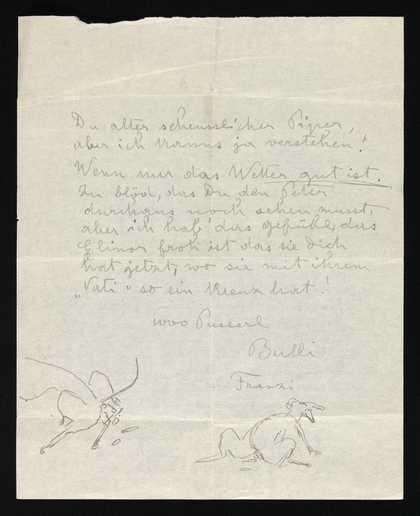 Du alter scheusslicher Pipser,
aber ich kanns ja verstehen!
Wenn nur das Wetter gut ist.
Zu blöd, das Du den Peter
durchaus noch sehen musst,
aber ich hab' das gefühl, das
Elinor froh ist das sie Dich
hat jetzt, wo sie mit ihrem
„Vati" so ein Kreuz hat!
1000 Pusserl
Bulli
Franzi